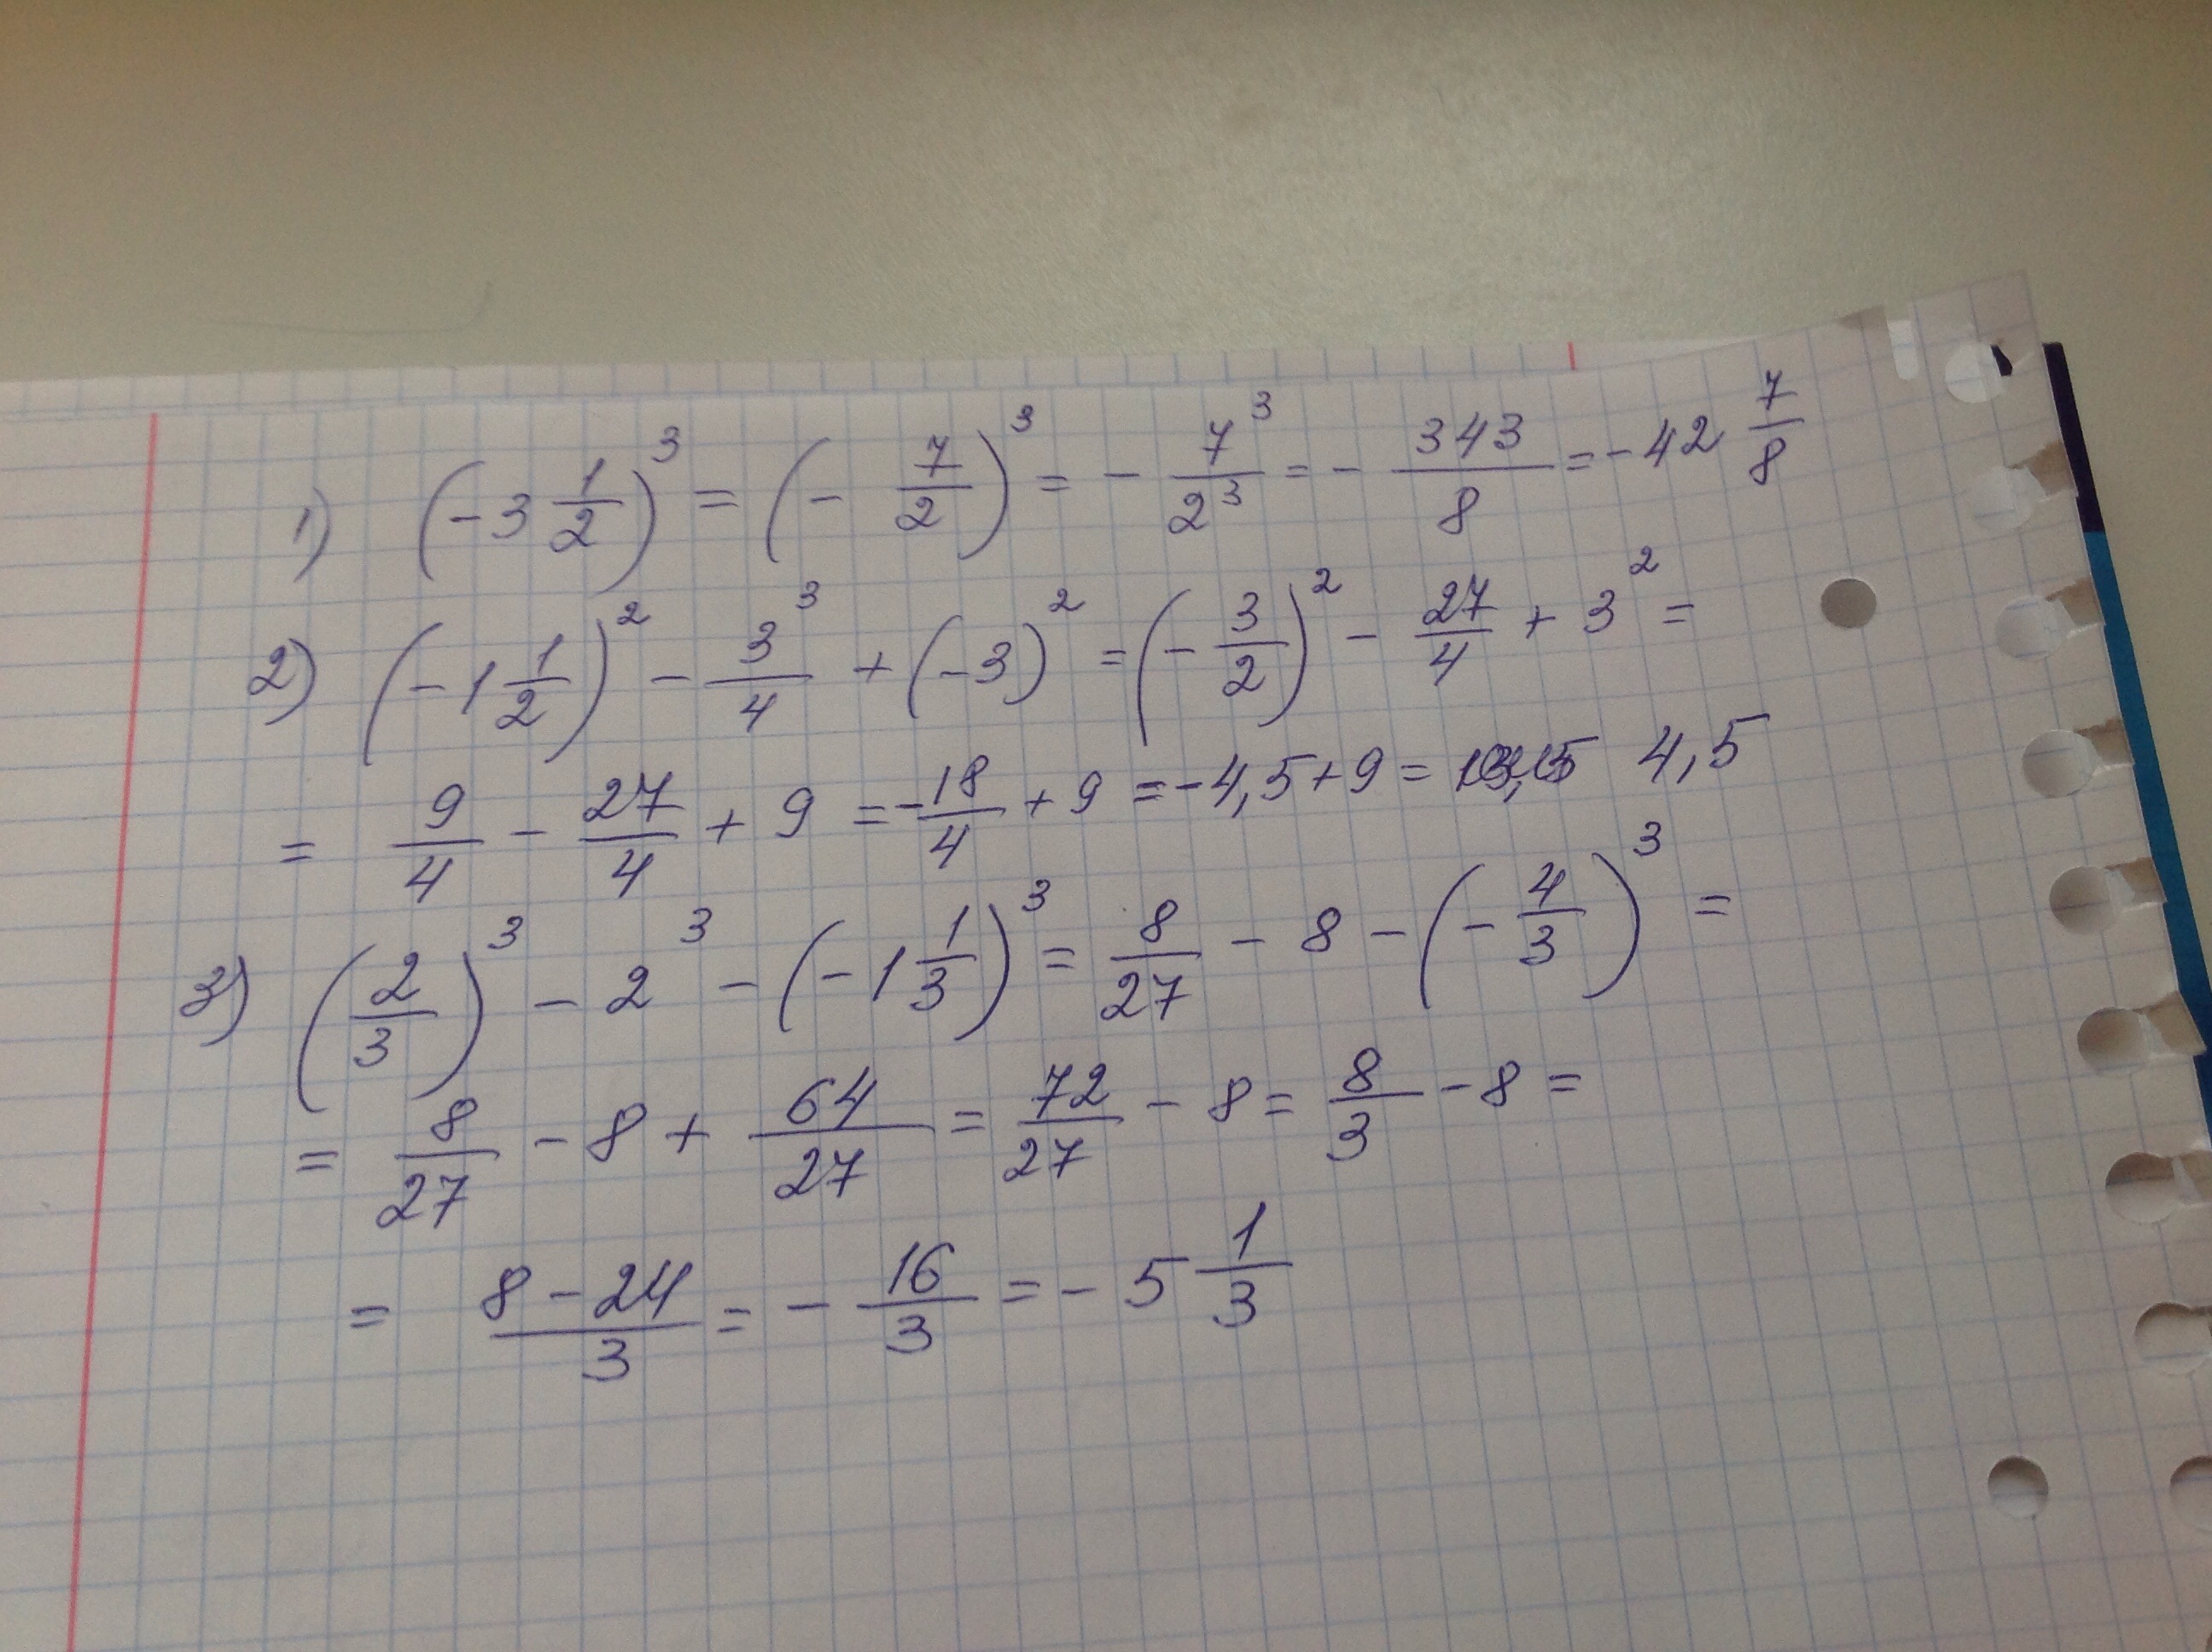 1) (-3 1/2)^3 = (- 7/2)^3 = - 7^3/2^3 = - 343/8 = -42 7/8
2) (-1 1/2)^2 - 3^3/4 + (-3)^2 = (- 3/2)^2 - 27/4 + 3^2 =
= 9/4 - 27/4 + 9 = - 18/4 + 9 = -4,5 + 9 = 4,5
3) (2/3)^3 - 2^3 - (-1 1/3)^3 = 8/27 - 8 - (- 4/3)^3 =
= 8/27 - 8 + 64/27 = 72/27 - 8 = 8/3 - 8 =
= 8-24/3 = - 16/3 = - 5 1/3